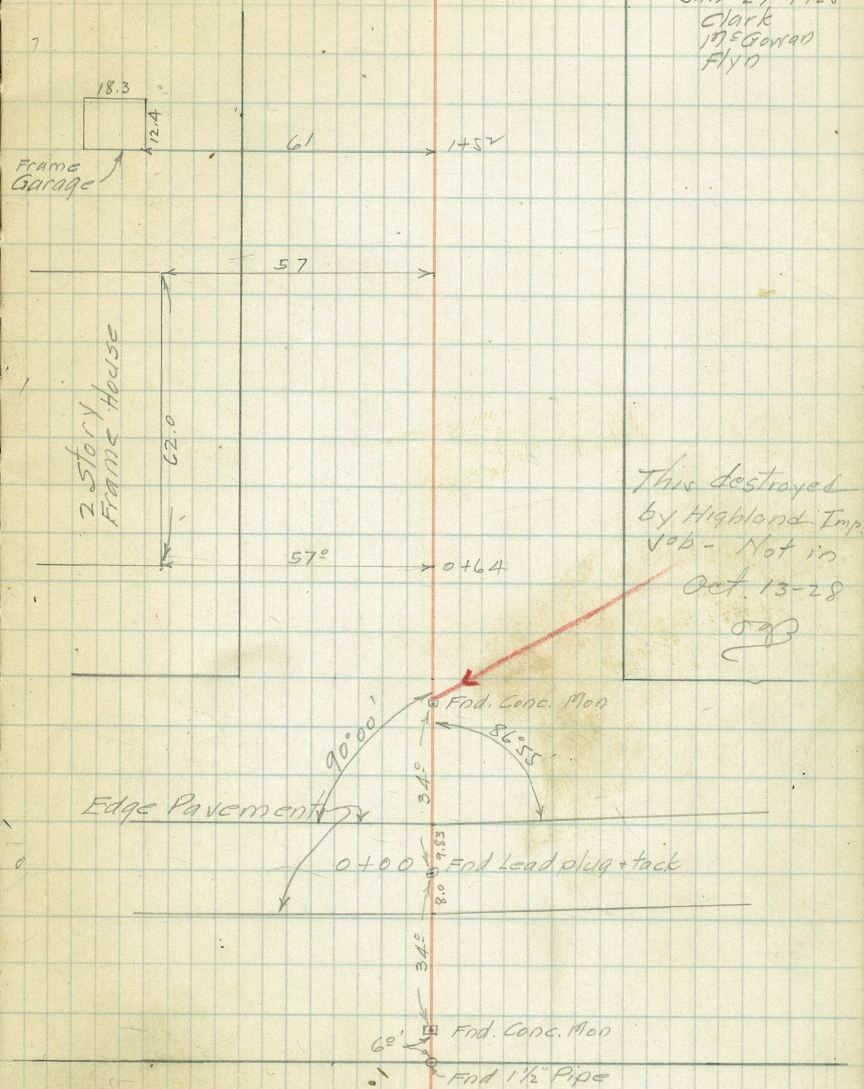 Clark
McGowan
Flyn
18.3
12.4
61
1+52
Frame
Garage
57
2 Story
Frame House
62.0
This destroyed
by Highland Imp.
Job - Not in
Oct. 13-28
57º
0+64
Fnd. Conc. Mon
90°00'
86°55'
34º
Edge Pavement
9.83
0+00
Fnd Lead plug + tack
8.0
34º
Fnd. Conc. Mon
6º'
Fnd 1½" Pipe